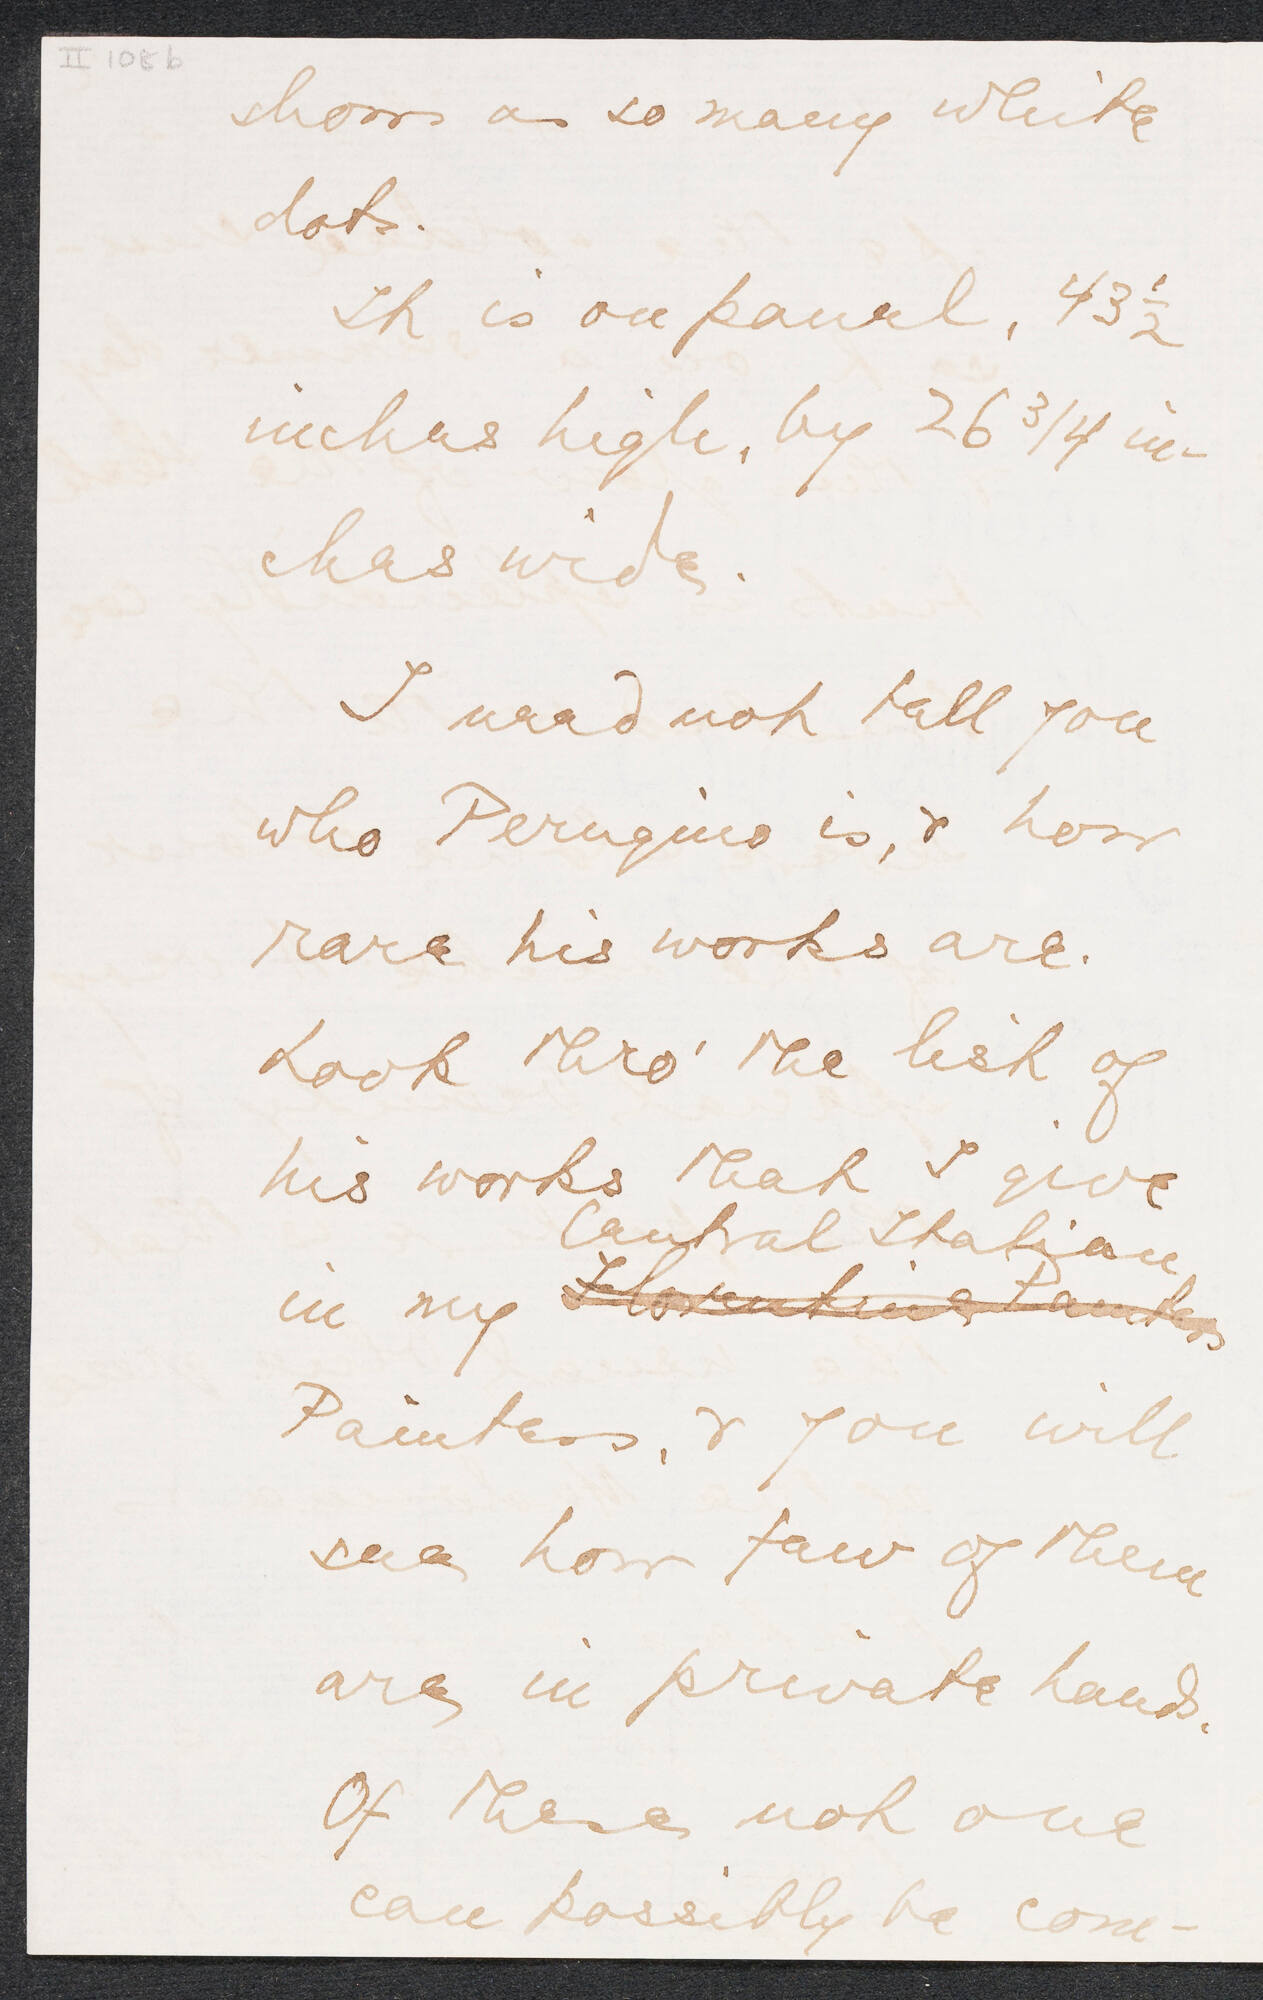 II 108b
shows as so many white
dots.
It is on panel, 43 1/2
inches high, by 26 3/4 in-
ches wide.
I need not tell you
who Perugino is, & how
rare his works are.
Look thro' the list of
his works that I give
Central Italian
in my Florentine Painters
Painters, & you will
see how few of them
are in private hands.
Of these not one
can possibly be com-